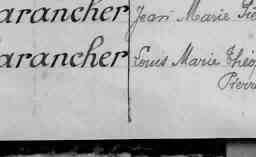 arancher Jean Marie
arancher Louis Marie Théo
Pierre